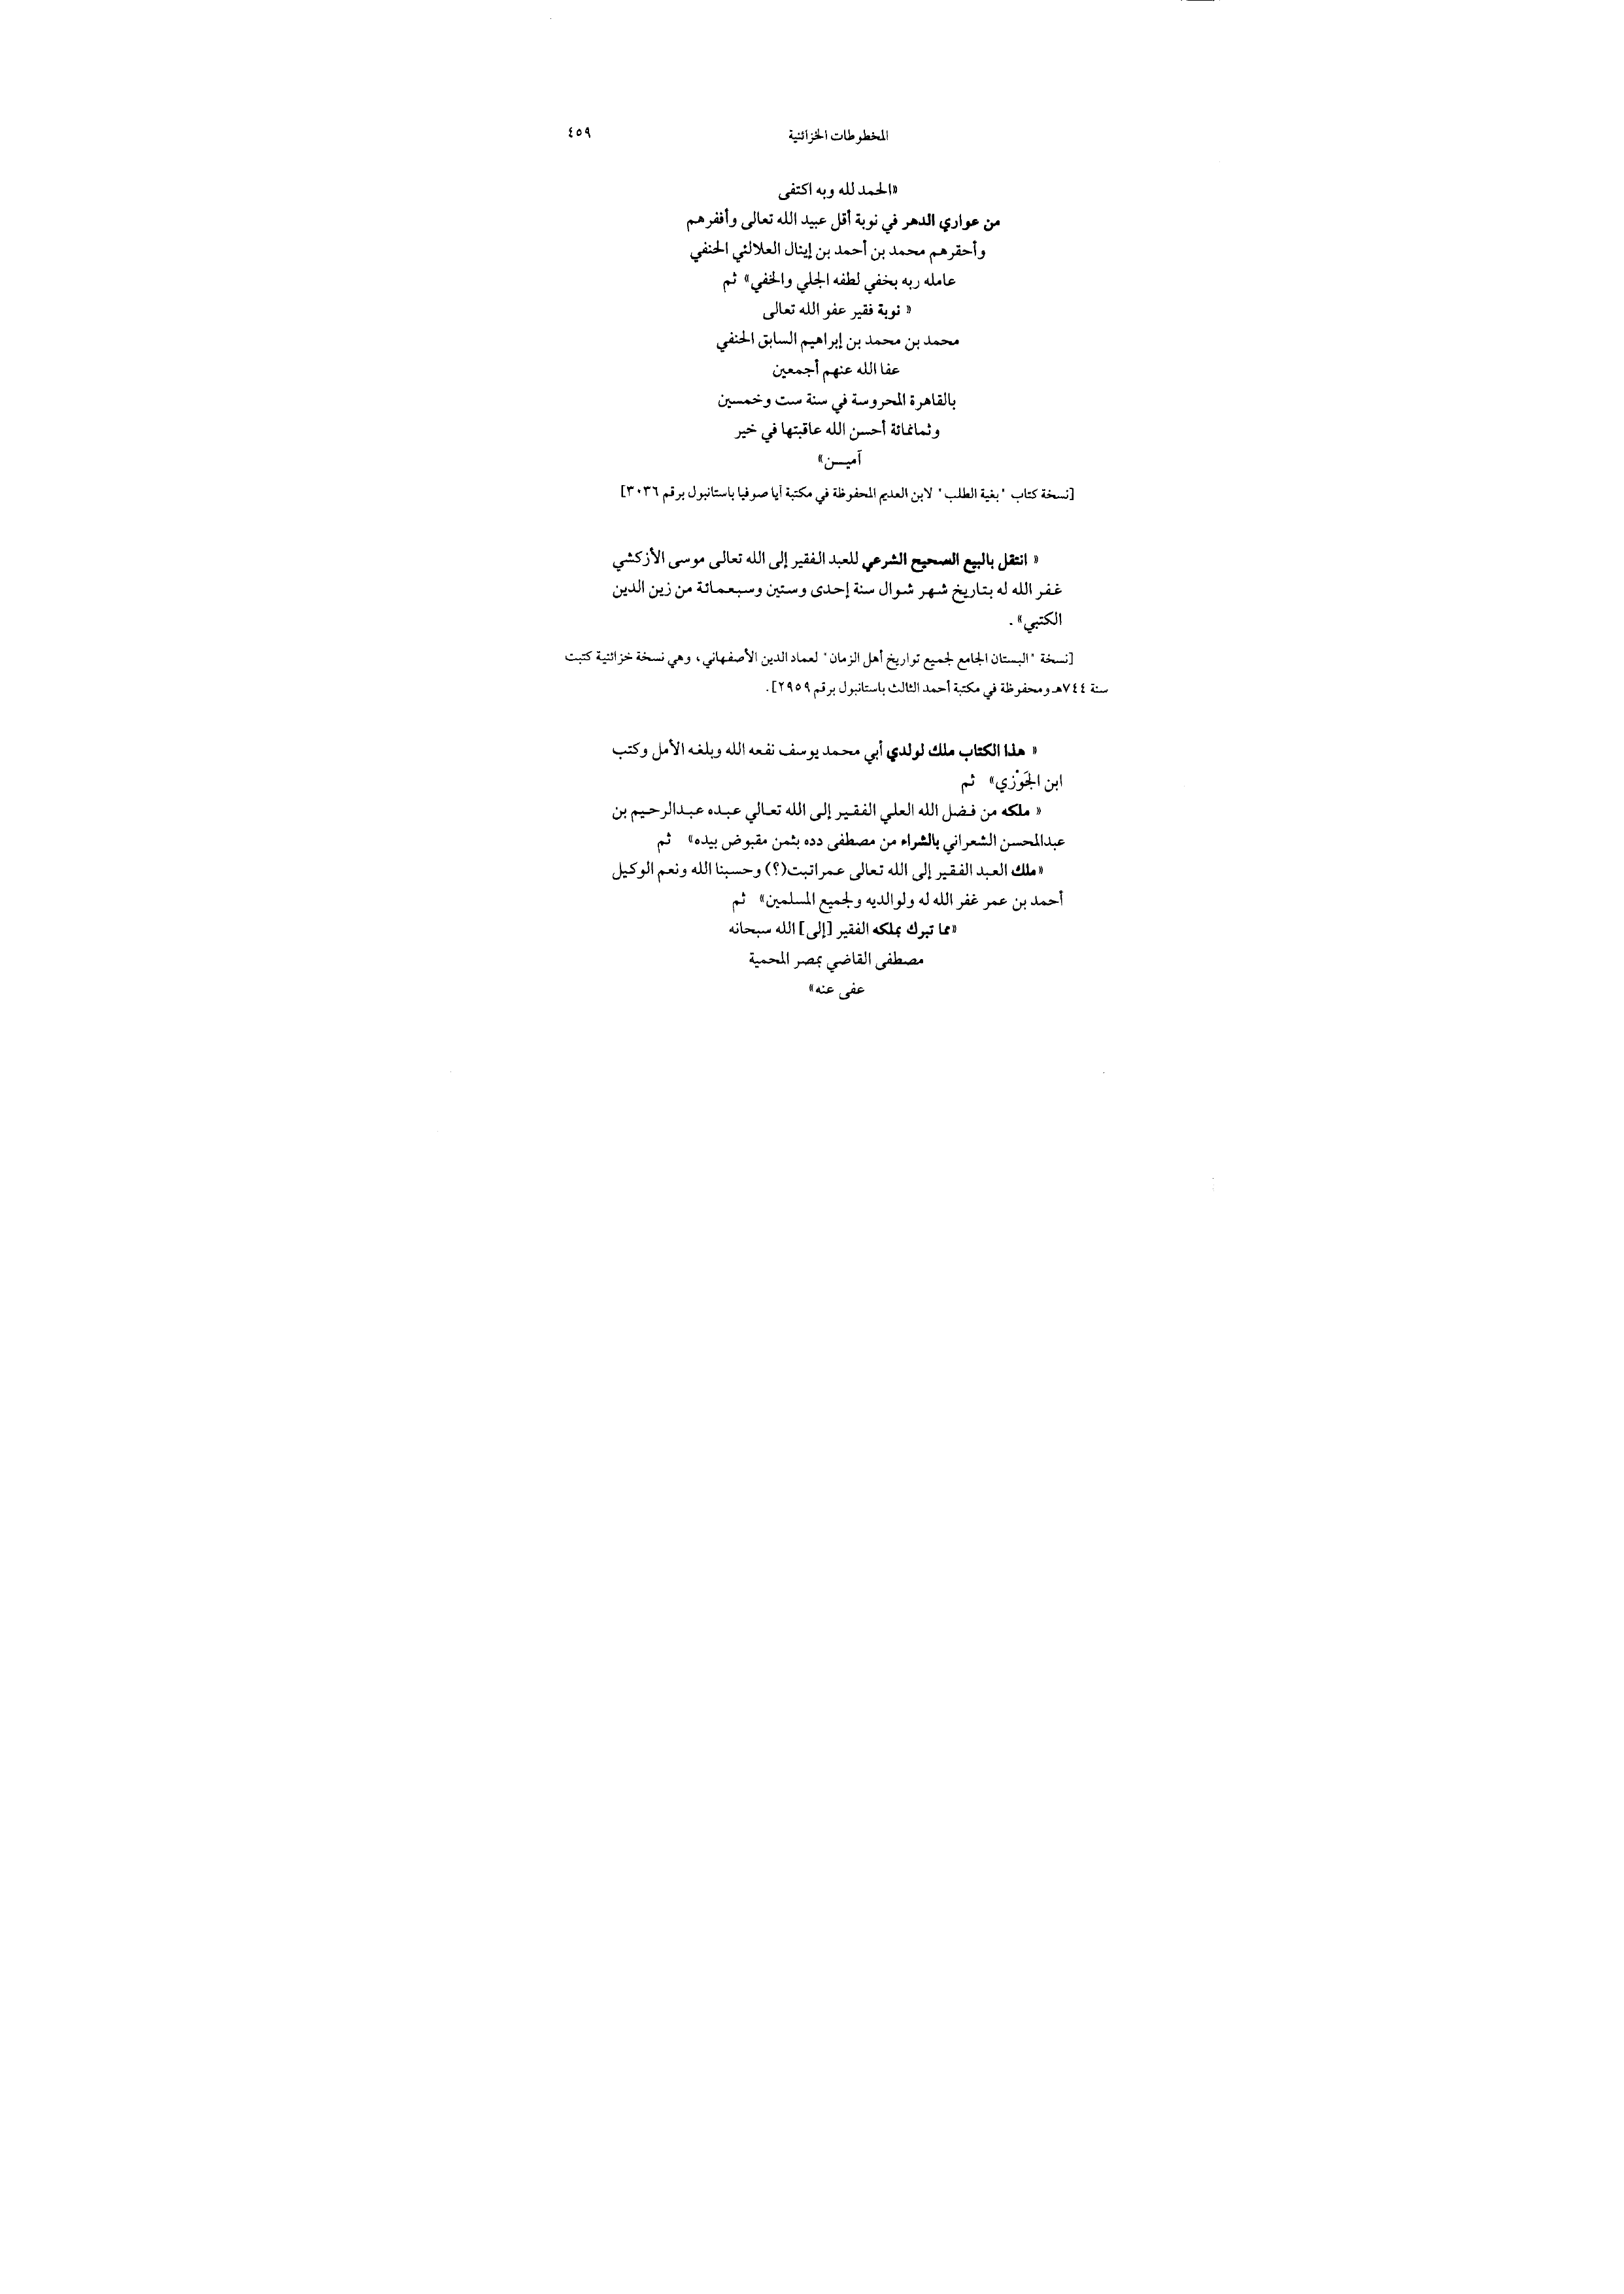 المخطوطات الخزائنية ٤٥٩
«الحمد لله وبه اكتفى
من عواري الدهر في نوبة أقل عبيد الله تعالى وأفقرهم
وأحقرهم محمد بن أحمد بن إينال العلائي الحنفي
عامله ربه بخفي لطفه الجلي والخفي» ثم
« نوبة فقير عفو الله تعالى
محمد بن محمد بن إبراهيم السابق الحنفي
عفا الله عنهم أجمعين
بالقاهرة المحروسة في سنة ست وخمسين
وثمانمائة أحسن الله عاقبتها في خير
آميـــن»
[نسخة كتاب "بغية الطلب" لابن العديم المحفوظة في مكتبة أيا صوفيا باستانبول برقم ٣٠٣٦]
« انتقل بالبيع الصحيح الشرعي للعبد الفقير إلى الله تعالى موسى الأزكشي
غفر الله له بتاريخ شهر شوال سنة إحدى وستين وسبعمائة من زين الدين
الكتبي» .
[نسخة "البستان الجامع لجميع تواريخ أهل الزمان" لعماد الدين الأصفهاني، وهي نسخة خزائنية كتبت
سنة ٧٤٤هـ ومحفوظة في مكتبة أحمد الثالث باستانبول برقم ٢٩٥٩].
« هذا الكتاب ملك لولدي أبي محمد يوسف نفعه الله وبلغه الأمل وكتب
ابن الجَوْزي» ثم
« ملكه من فضل الله العلي الفقير إلى الله تعالي عبده عبدالرحيم بن
عبدالمحسن الشعراني بالشراء من مصطفى دده بثمن مقبوض بيده» ثم
«ملك العبد الفقير إلى الله تعالى عمراتبت(؟) وحسبنا الله ونعم الوكيل
أحمد بن عمر غفر الله له ولوالديه ولجميع المسلمين» ثم
«مما تبرك بملكه الفقير [إلى] الله سبحانه
مصطفى القاضي بمصر المحمية
عفى عنه»